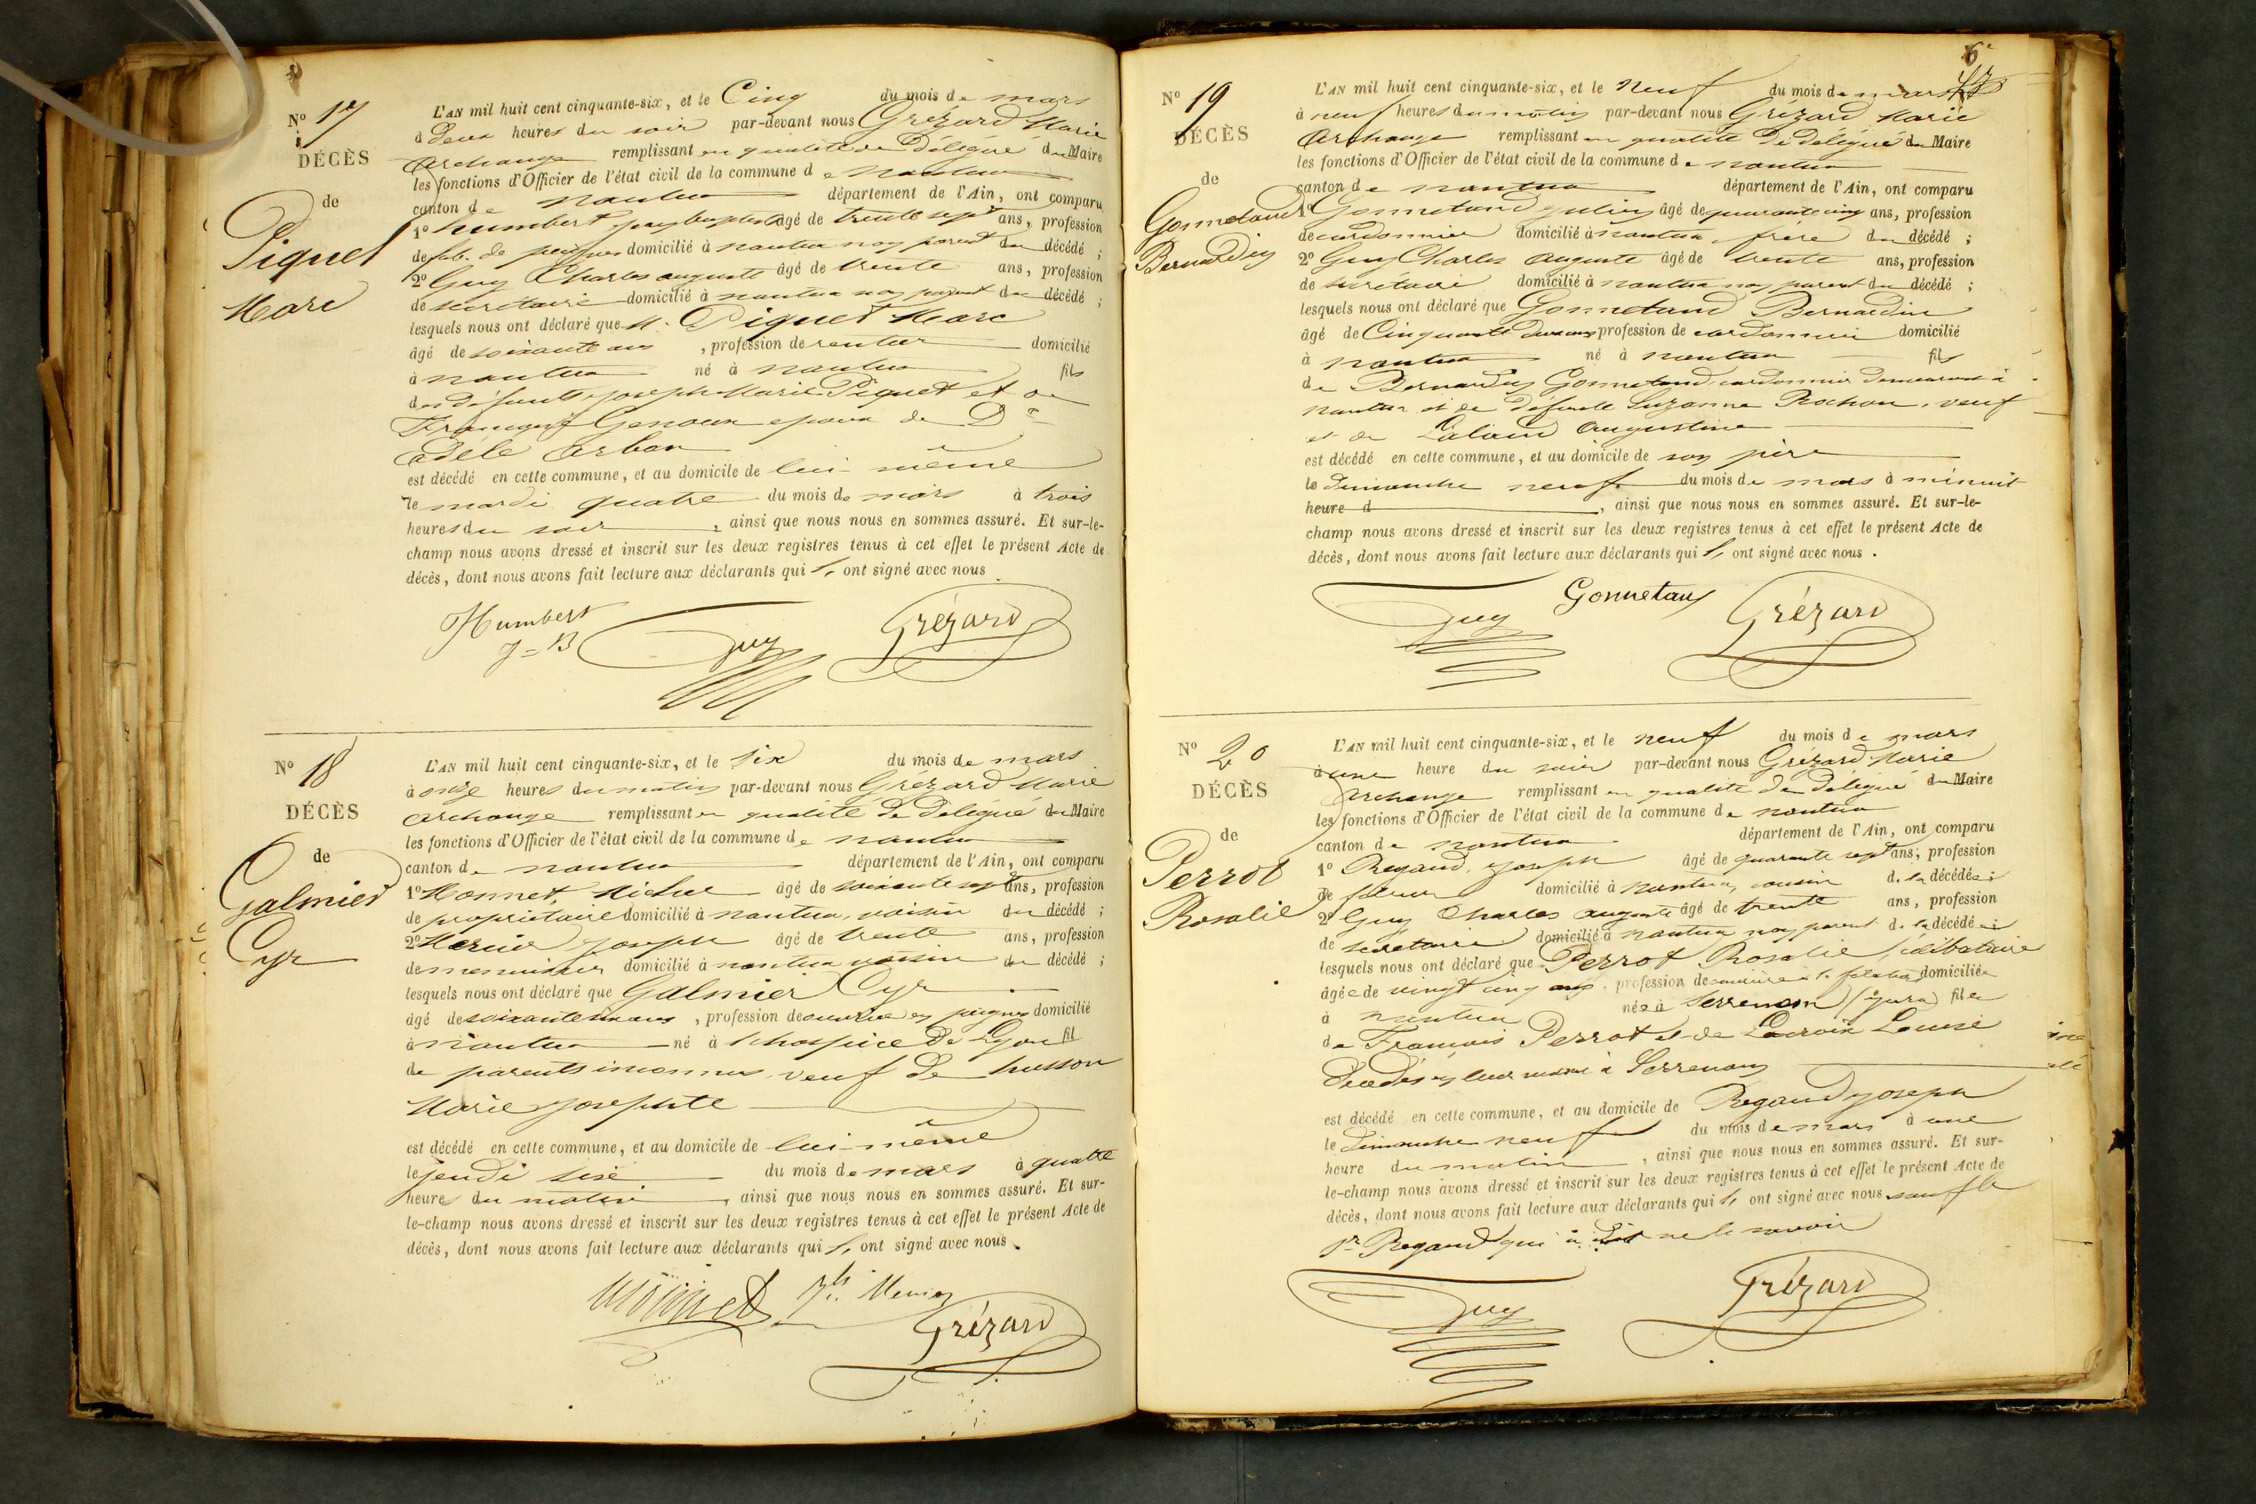 N° 17
DÉCÈS
de
Piquet
Marc
L'AN mil huit cent cinquante-six, et le Cinq du mois de mars
à deux heures du soir par-devant nous Grézard Marie
Archange remplissant en qualité de Délégué du Maire
les fonctions d'Officier de l'état civil de la commune de nantua
canton de nantua département de l'Ain, ont comparu
1° humbert jean baptiste âgé de trente sept ans, profession
de fab. de peignes domicilié à nantua non parent du décédé ;
2° Guy Charles auguste âgé de trente ans, profession
de secrétaire domicilié à nantua non parent du décédé ;
lesquels nous ont déclaré que M. Piquet Marc
âgé de soixante ans , profession de rentier domicilié
à nantua né à nantua fils
des défunts joseph Marie Piquet et de
Françoise Genoux epoux de De
Adèle Arban
est décédé en cette commune, et au domicile de lui-même
le mardi quatre du mois de mars à trois
heures du soir , ainsi que nous nous en sommes assuré. Et sur-le-
champ nous avons dressé et inscrit sur les deux registres tenus à cet effet le présent Acte de
décès, dont nous avons fait lecture aux déclarants qui ont signé avec nous
Humbert
J=B
Guy
Grézard
N° 18
DÉCÈS
de
Galmier
Cyr
L'AN mil huit cent cinquante-six, et le six du mois de mars
à onze heures du matin par-devant nous Grézard Marie
Archange remplissant en qualité de Délégué du Maire
les fonctions d'Officier de l'état civil de la commune de nantua
canton de nantua département de l'Ain, ont comparu
1° Monnet, Michel âgé de soixante sept ans, profession
de propriétaire domicilié à nantua, voisin du décédé ;
2° Mercier joseph âgé de trente ans, profession
de menuisier domicilié à nantua voisin du décédé ;
lesquels nous ont déclaré que Galmier Cyr
âgé de soixante , profession de ouvrier en peignes domicilié
à nantua né à l'hospice de Lyon fil
de parents inconnus, veuf de husson
Marie josephte
est décédé en cette commune, et au domicile de lui-même
le jeudi sixe du mois de mars à quatre
heures du matin , ainsi que nous nous en sommes assuré. Et sur-
le-champ nous avons dressé et inscrit sur les deux registres tenus à cet effet le présent Acte de
décès, dont nous avons fait lecture aux déclarants qui ont signé avec nous.
Monnet
Grézard
6e
N° 19
DÉCÈS
de
Gonnetand
Bernardin
L'AN mil huit cent cinquante-six, et le neuf du mois de mars
à neuf heures du matin par-devant nous Grézard Marie
Archange remplissant en qualité De délégué du Maire
les fonctions d'Officier de l'état civil de la commune de nantua
canton de nantua département de l'Ain, ont comparu
1° Gonnetand julien âgé de quarante cinq ans, profession
de cordonnier domicilié à nantua, frère du décédé ;
2° Guy Charles auguste âgé de trente ans, profession
de secrétaire domicilié à nantua non parent du décédé ;
lesquels nous ont déclaré que Gonnetand Bernardin
âgé de Cinquante deux ans profession de cordonnier domicilié
à nantua né à nantua fils
de Bernardin Gonnetand cordonnier demeurant à
nantua et de défunte Suzanne Rochon, veuf
et de Laland Augustine
est décédé en cette commune, et au domicile de son père
le dimanche neuf du mois de mars à minuit
heure d , ainsi que nous nous en sommes assuré. Et sur-le-
champ nous avons dressé et inscrit sur les deux registres tenus à cet effet le présent Acte de
décès, dont nous avons fait lecture aux déclarants qui ont signé avec nous.
Guy
Gonnetand
Grézard
N° 20
DÉCÈS
de
Perrot
Rosalie
L'AN mil huit cent cinquante-six, et le neuf du mois de mars
à une heure du soir par-devant nous Grézard Marie
Archange remplissant en qualité de délégué du Maire
les fonctions d'Officier de l'état civil de la commune de nantua
canton de nantua département de l'Ain, ont comparu
1° Regaud, joseph âgé de quarante sept ans, profession
de domicilié à nantua, cousin de la décédée ;
2° Guy Charles auguste âgé de trente ans, profession
de secrétaire domicilié à nantua non parent de la décédée
lesquels nous ont déclaré que Perrot Rosalie, célibataire
âgée de vingt cinq ans, profession de ouvrière à la filature domiciliée
à nantua née à Serrenom (jura) fille
de François Perrot et de Lacroix Louise
Décédés en leur vivant à Serrenom
est décédé en cette commune, et au domicile de Regaud joseph
le Dimanche neuf du mois de mars à une
heure du matin , ainsi que nous nous en sommes assuré. Et sur-
le-champ nous avons dressé et inscrit sur les deux registres tenus à cet effet le présent Acte de
décès, dont nous avons fait lecture aux déclarants qui ont signé avec nous sauf le
Sr Regaud qui a dit ne le savoir
Guy
Grézard